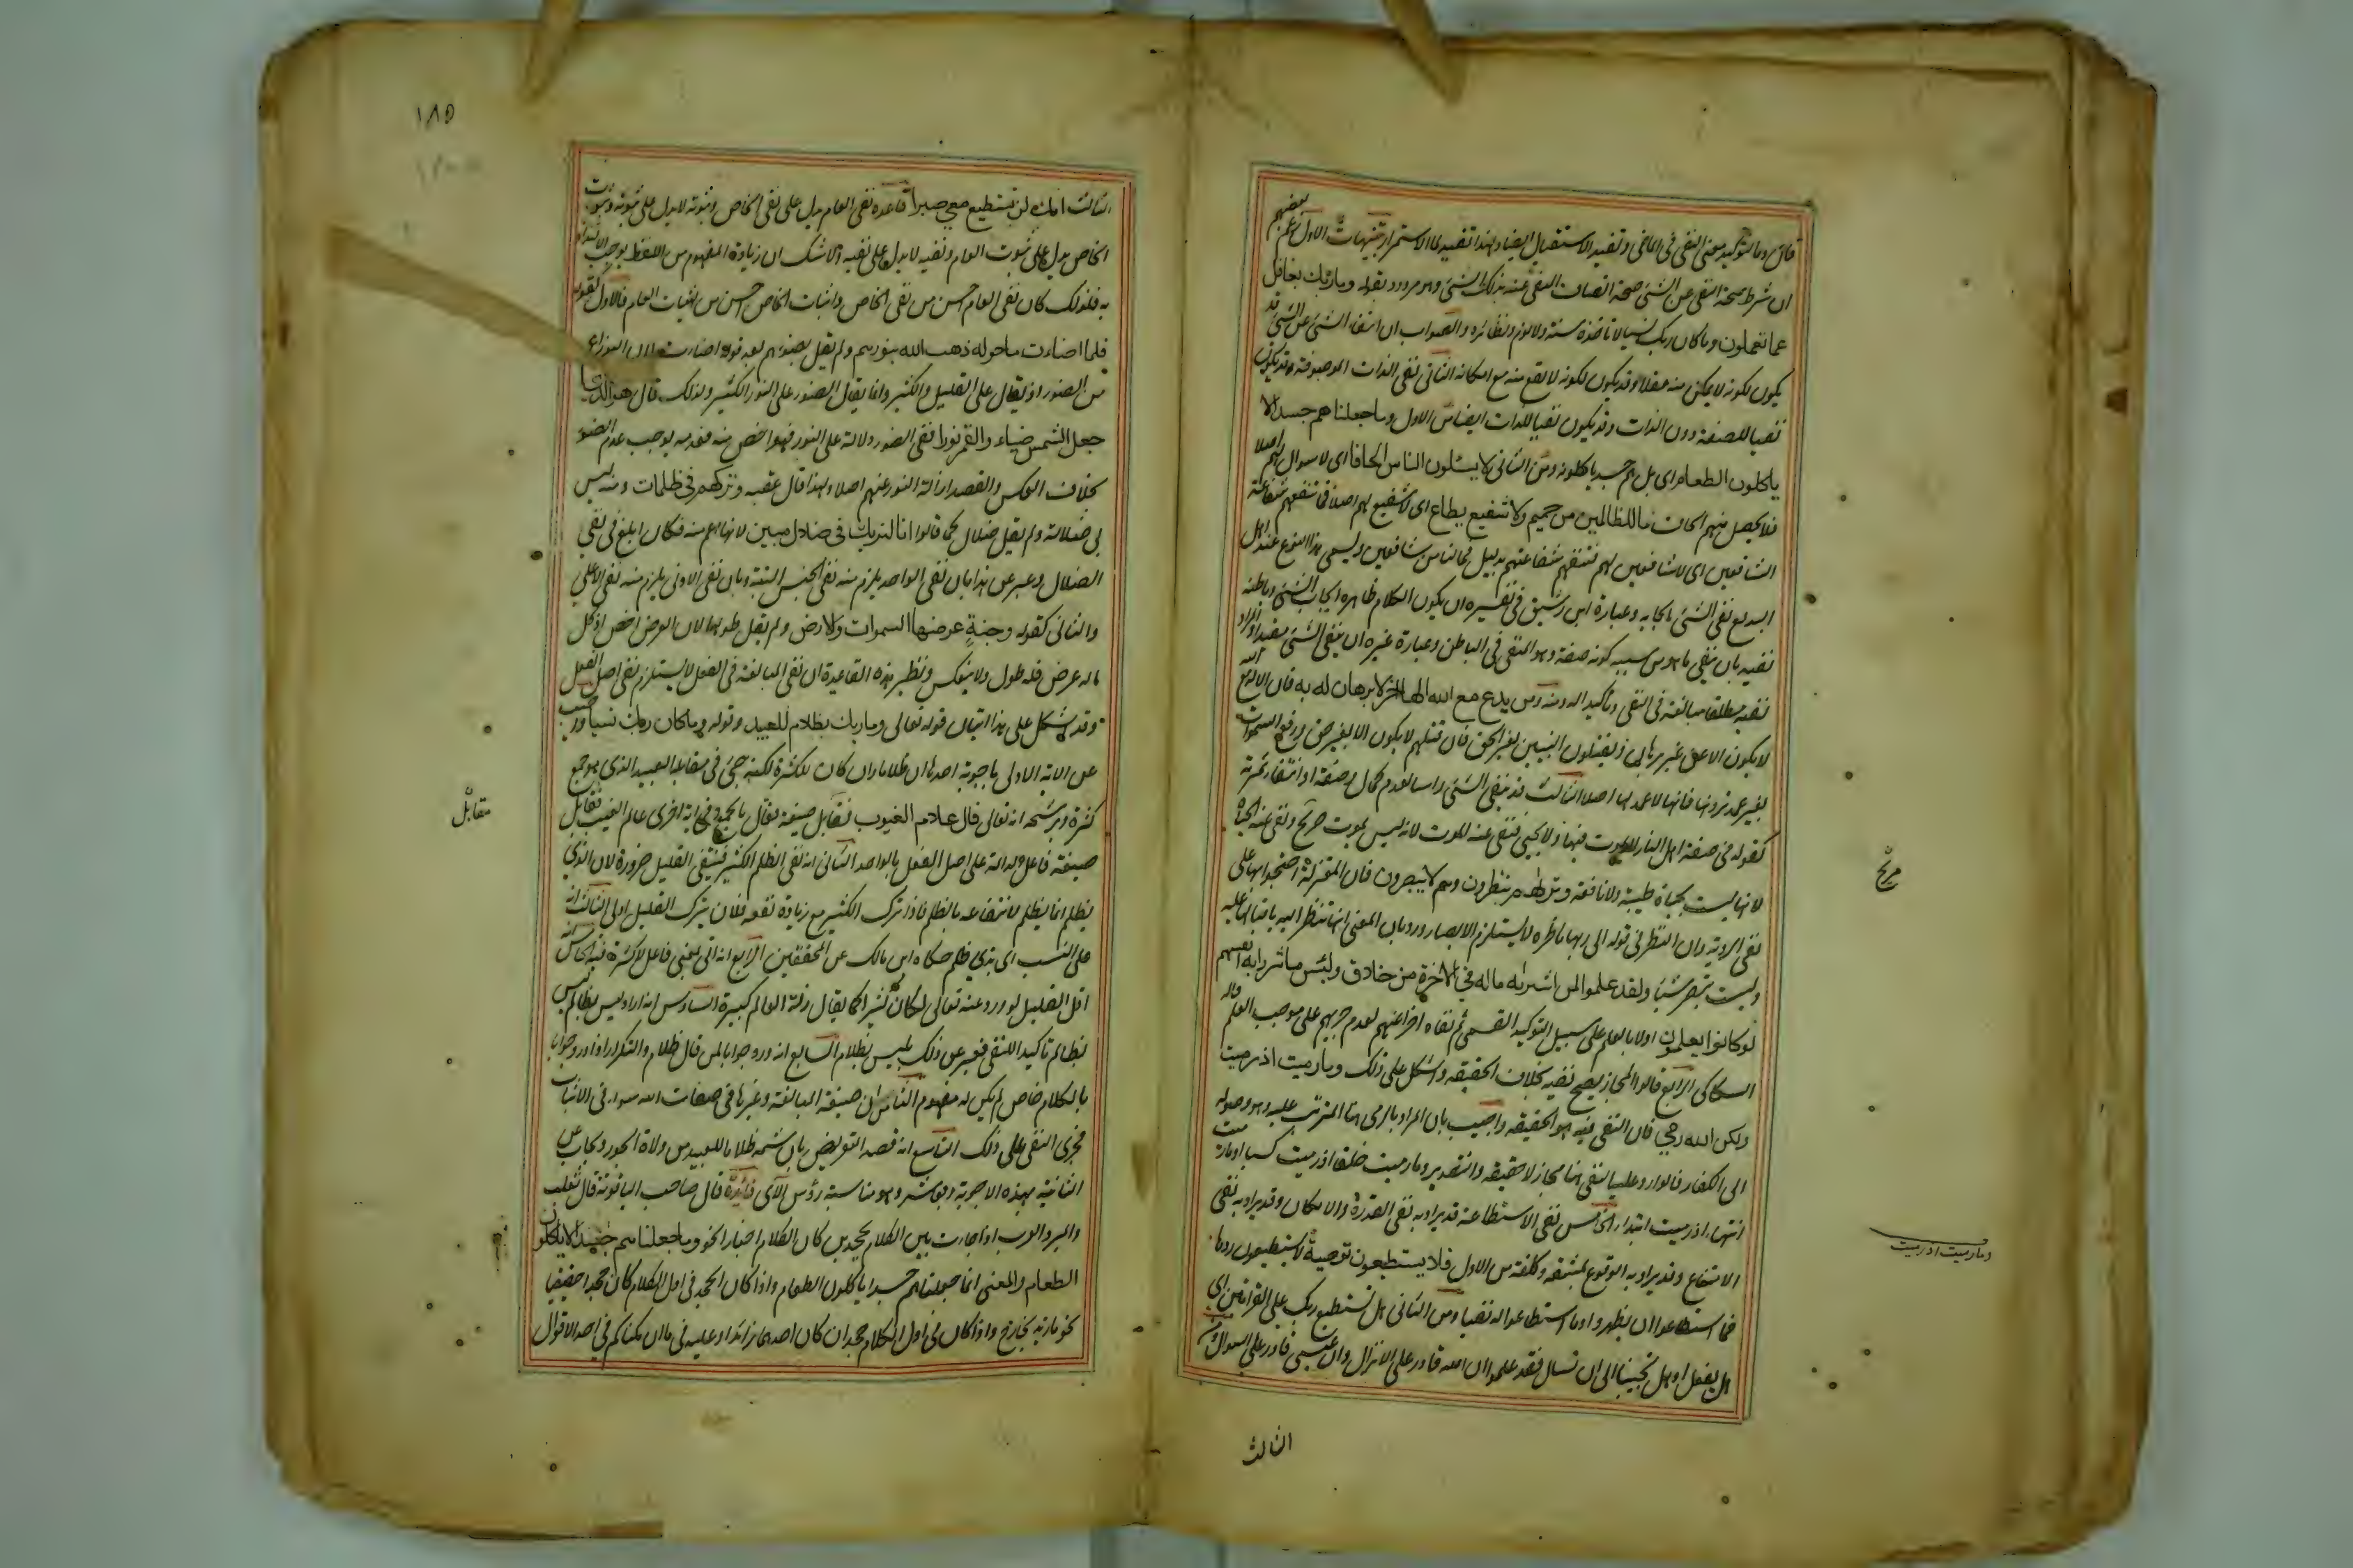 قال وما لتوكيد معنى النفى فى الماضى وتفيد الاستقبال ايضا ولهذا تفيد لما الاستمرار تنبيهات الاول زعم بعضهم
ان شرط صحة النفى عن الشئ صحة اتصاف المنفى عنه بذلك الشئ وهو مردود بقوله وما ربك بغافل
عما تعملون وما كان ربك نسيا لا تاخذه سنة ولا نوم ونظائره والصواب ان انتفاء الشئ عن الشئ قد
يكون لكونه لا يمكن منه عقلا وقد يكون لكونه لا يقع منه مع امكانه الثانى نفى الذات الموصوفة قد يكون
نفيا للصفة دون الذات وقد يكون نفيا للذات ايضا من الاول وما جعلناهم جسدا لا
ياكلون الطعام اى بل هم جسد ياكلونه ومن الثانى لا يسئلون الناس الحافا اى لا سوال لهم اصلا
فلا يحصل منهم الحاف ما للظالمين من حميم ولا شفيع يطاع اى لا شفيع لهم اصلا فما تنفعهم شفاعة
الشافعين اى لا شافعين لهم فتنفعهم شفاعتهم بدليل فما لنا من شافعين ويسمى هذا النوع عند اهل
البديع نفى الشئ بايجابه وعبارة ابن رشيق فى تفسيره ان يكون الكلام ظاهره ايجاب الشئ وباطنه
نفيه بان ينفى ما هو من سببه كونه صفة وهو المنفى فى الباطن وعبارة غيره ان ينفى الشئ مقيدا والمراد
نفيه مطلقا مبالغة فى النفى وتاكيدا له ومنه ومن يدع مع الله الها اخر لا برهان له به فان الاله مع الله
لا يكون الا عن غير برهان ويقتلون النبيين بغير الحق فان قتلهم لا يكون الا بغير حق رفع السموات
بغير عمد ترونها فانها لا عمد لها اصلا الثالث قد ينفى الشئ راسا لعدم كمال وصفه او انتفاء ثمرته
كقوله فى صفة اهل النار لا يموت فيها ولا يحيى فنفى عنه الموت لانه ليس بموت صريح ونفى عنه الحياة
لانها ليست بحياة طيبة ولا نافعة وتراهم ينظرون وهم لا يبصرون فان المعتزلة احتجوا بها على
نفى الروية وان النظر فى قوله الى ربها ناظرة لا يستلزم الابصار ورد بان المعنى انها تنظر اليه باقبالها عليه
وليست تبصر شيئا ولقد علموا لمن اشتراه ماله فى الاخرة من خلاق ولبئس ما شروا به انفسهم
لو كانوا يعلمون اولا بالعلم على سبيل التوكيد القسمى ثم نفاه اخرا عنهم لعدم جريهم على موجب العلم قاله
السكاكى الرابع قالوا المجاز يصح نفيه بخلاف الحقيقة واشكل على ذلك وما رميت اذ رميت
ولكن الله رمى فان المنفى فيه هو الحقيقة واجيب بان المراد بالرمى هنا المترتب عليه وهو وصوله
الى الكفار فالوارد عليه النفى هنا مجاز لا حقيقة والتقدير وما رميت خلقا اذ رميت كسبا او ما رميت
انتهاء اذ رميت ابتداء الخامس نفى الاستطاعة قد يراد به نفى القدرة والامكان وقد يراد به نفى
الامتناع وقد يراد به الوقوع بمشقة وكلفة من الاول فلا يستطيعون توصية لا يستطيعون ردها
فما استطاعوا ان يظهروه وما استطاعوا له نقبا ومن الثانى هل تستطيع ربك على القراءتين اى
هل يفعل او هل تجيبنا الى ان تسال فقد علموا ان الله قادر على الانزال وان عيسى قادر على السوال ومن
الثالث
مريح
وما رميت اذ رميت
١٨٥
الثالث انك لن تستطيع معى صبرا قاعدة نفى العام يدل على نفى الخاص وثبوته لا يدل على ثبوته وثبوت
الخاص يدل على ثبوت العام ونفيه لا يدل على نفيه ولا شك ان زيادة المفهوم من اللفظ يوجب الالتذاذ
به فلذلك كان نفى العام احسن من نفى الخاص واثبات الخاص احسن من اثبات العام فالاول كقوله
فلما اضاءت ما حوله ذهب الله بنورهم ولم يقل بضوئهم بعد قوله اضاءت لان النور اعم
من الضوء اذ يقال على القليل والكثير وانما يقال الضوء على النور الكثير ولذلك قال هو الذى
جعل الشمس ضياء والقمر نورا ففى الضوء دلالة على النور فهو اخص منه فعدمه يوجب عدم الضوء
بخلاف العكس والقصد ازالة النور عنهم اصلا ولهذا قال عقبه وتركهم فى ظلمات ومنه ليس
بى ضلالة ولم يقل ضلال كما قالوا انا لنريك فى ضلال مبين لانها اعم منه فكان ابلغ فى نفى
الضلال وعبر عن هذا بان نفى الواحد يلزم منه نفى الجنس البتة وبان نفى الادنى يلزم منه نفى الاعلى
والثانى كقوله وجنة عرضها السموات والارض ولم يقل طولها لان العرض اخص اذ كل
ماله عرض فله طول ولا ينعكس ونظير هذه القاعدة ان نفى المبالغة فى الفعل لا يستلزم نفى اصل الفعل
وقد يشكل على هذا ايتان قوله تعالى وما ربك بظلام للعبيد وقوله وما كان ربك نسيا واجيب
عن الاية الاولى باجوبة احدها ان ظلاما وان كان للكثرة لكنه جئ فى مقابلة العبيد الذى هو جمع
كثرة ويرشحه انه تعالى قال علام الغيوب فقابل صيغة فعال بالجمع وفى اية اخرى عالم الغيب فقابل
صيغة فاعل الدالة على اصل الفعل بالواحد الثانى انه نفى الظلم الكثير فينتفى القليل ضرورة لان الذى
يظلم انما يظلم لانتفاعه بالظلم فاذا ترك الكثير مع زيادة نفعه فلان يترك القليل اولى الثالث انه
على النسب اى بذى ظلم حكاه ابن مالك عن المحققين الرابع انه اتى بمعنى فاعل لا كثرة فيه الخامس ان
اقل القليل لو ورد عنه تعالى لكان كثيرا كما يقال زلة العالم كبيرة السادس انه اراد ليس بظالم ليس
بظالم تاكيدا للنفى فعبر عن ذلك بليس بظلام السابع انه ورد جوابا لمن قال ظلام والتكرار اذا ورد جوابا
بالكلام خاص لم يكن له مفهوم الثامن ان صيغة المبالغة وغيرها فى صفات الله سواء فى الاثبات
فجرى النفى على ذلك التاسع انه قصد التعريض بان ثمه ظلاما للعبيد من ولاة الجور ويجاب عن
الثانية بهذه الاجوبة وبعاشر وهو مناسبة رؤس الآى فائدة قال صاحب الياقوتة قال ثعلب
والمبرد العرب اذا جاءت بين الكلام بجحدين كان الكلام اخبارا نحو وما جعلناهم جسدا لا ياكلون
الطعام والمعنى انما جعلناهم جسدا ياكلون الطعام واذا كان الجحد فى اول الكلام كان جحدا حقيقيا
نحو ما زيد بخارج واذا كان فى اول الكلام جحدان كان احدهما زائدا وعليه فى ما ان مكناكم فى احد الاقوال
مقابل